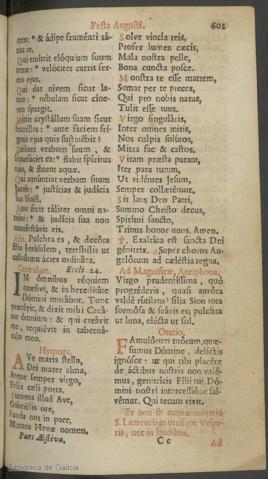 Festa Augusti. 601
cem: * & ádipe fruménti sá-
tiat te.
Qui emíttit elóquium suum
terræ: * velóciter currit ser-
mo ejus.
Qui dat nivem sicut la-
nam: * nébulam sicut cíne-
rem spargit.
Mittit crystállum suam sicut
buccéllas: * ante fáciem frí-
goris ejus quis sustinébit?
Emíttet verbum suum, &
liquefáciet ea: * flabit spíritus
ejus, & fluent aquæ.
Qui annúntiat verbum suum
Jacob: * justítias & judícia
sua Israël.
Non fecit táliter omni na-
tióni: * & judícia sua non
manifestávit eis.
Aña. Pulchra es, & decóra
fília Jerúsalem, terríbilis ut
castrórum ácies ordináta.
Capitulum. Eccli. 24.
IN ómnibus réquiem
quæsívi, & in hereditáte
Dómini morábor. Tunc
præcépit, & dixit mihi Creá-
tor ómnium: & qui creávit
me, requiévit in taberná-
culo meo.
Hymnus.
AVe maris stella,
Dei mater alma,
Atque semper virgo,
Felix cæli porta.
Sumens illud Ave,
Gabriélis ore,
Funda nos in pace,
Mutans Hevæ nomen.
Pars Æstiva,
Solve vincla reis,
Profer lumen cæcis,
Mala nostra pelle,
Bona cuncta posce.
Monstra te esse matrem,
Sumat per te preces,
Qui pro nobis natus,
Tulit esse tuus.
Virgo singuláris,
Inter omnes mitis,
Nos culpis solútos,
Mites fac & castos.
Vitam præsta puram,
Iter para tutum,
Ut vidéntes Jesum,
Semper collætémur.
Sit laus Deo Patri,
Summo Christo decus,
Spirítui sancto,
Tribus honor unus. Amen.
℣. Exaltáta est sancta Dei
génitrix. Super choros An-
gelórum ad cæléstia regna.
Ad Magnificat, Antiphona.
Virgo prudentíssima, quò
progréderis, quasi auróra
valdè rútilans? fília Sion tota
formósa & suávis es; pulchra
ut luna, elécta ut sol.
Oratio.
FAmulórum tuórum, quæ-
sumus Dómine, delíctis
ignósce: ut qui tibi placére
de áctibus nostris non valé-
mus, genitrícis Fílii tui Dó-
mini nostri intercessióne sal-
vémur. Qui tecum vivit.
Et non fit commemoratio
S. Laurentii in utrisque Vespe-
ris, nec in laudibus.
C c Ad
Biblioteca de Galicia